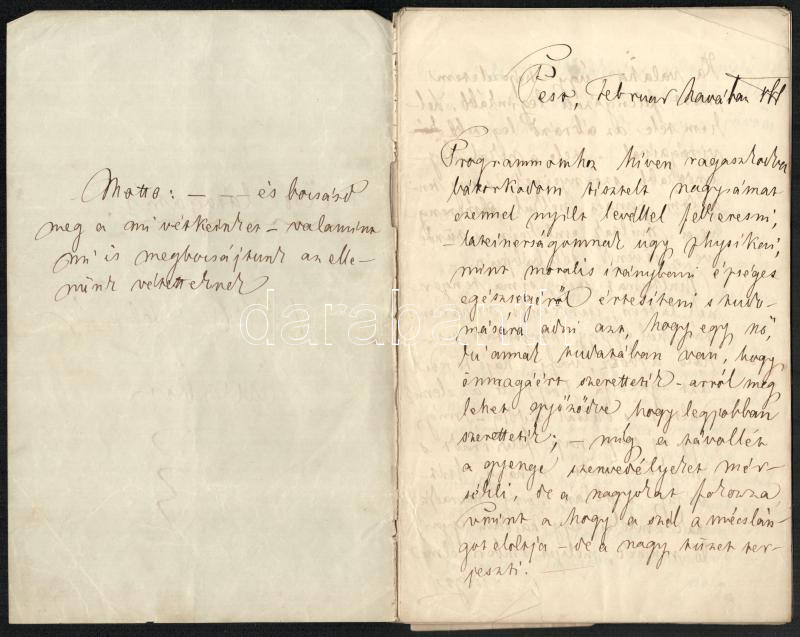 Motto: – – – és bocsásd
meg a mi vétkeinket – valamint
mi is megbocsájtunk az elle-
nünk vétetteknek
Pest, Februar havában
Programmomhoz híven ragaszkodva
bátorkodom tisztelt nagysámat
ezennel nyílt levéllel felkeresni,
– lateinerságomnak úgy physikai,
mint moralis iránybani épséges
egészségéről értesíteni s tudo-
mására adni azt, hogy egy nő,
ki annak tudatában van, hogy
önmagáért szerettetik – arról meg
lehet győződve hogy legjobban
szerettetik; – míg a távollét
a gyenge szenvedélyeket mér-
sékli, de a nagyokat fokozza,
vmint a hogy a szél a mécslán-
got eloltja – de a nagy tüzet ter-
jeszti.
darabanth